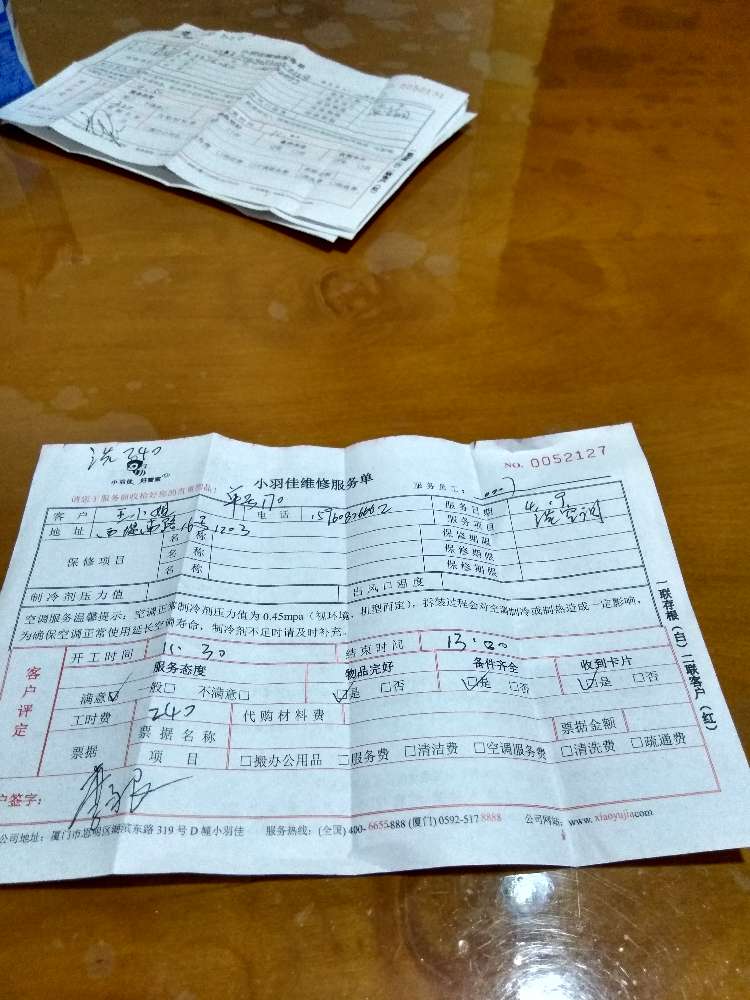 小羽佳维修服务单
0052131
洗240
NO. 0052127
小羽佳 好管家
小羽佳维修服务单
服务员工:
请您于服务前收拾好您的贵重物品!
单号170
客户
王小姐
电话
服务日期
地址
16号1203
名称
服务项目
洗空调
保修项目
名称
保修期限
名称
保修期限
保修期限
制冷剂压力值
出风口温度
空调服务温馨提示:空调正常制冷剂压力值为0.45mpa(视环境、机型而定),拆装过程会对空调制冷或制热造成一定影响,
为确保空调正常使用延长空调寿命,制冷剂不足时请及时补充。
客户评定
开工时间
11:30
结束时间
13:00
服务态度
物品完好
备件齐全
收到卡片
满意☑ 一般□ 不满意□
☑是 □否
☑是 □否
☑是 □否
工时费
240
代购材料费
票据
票据名称
票据金额
项目
□搬办公用品 □服务费 □清洁费 □空调服务费 □清洗费 □疏通费
户签字:
公司地址:厦门市思明区湖滨东路319号D幢小羽佳 服务热线:(全国)400-6655-888 (厦门)0592-517 8888 公司网站:www.xiaoyujia.com
一联存根(白)二联客户(红)